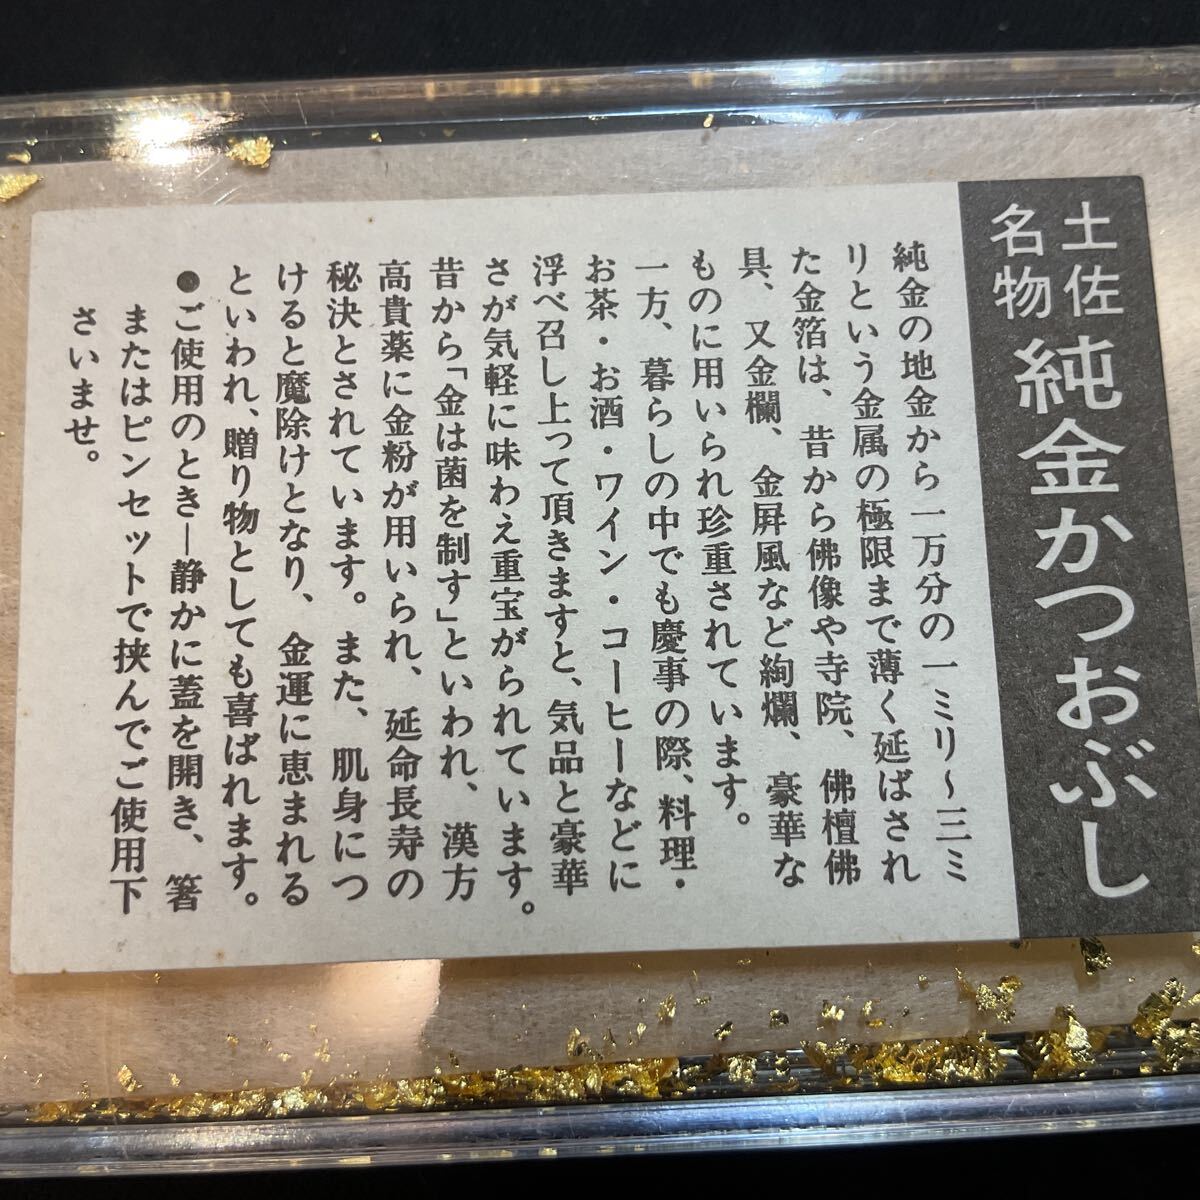 土佐
名物
純金かつおぶし
純金の地金から一万分の一ミリ〜三ミ
リという金属の極限まで薄く延ばされ
た金箔は、昔から佛像や寺院、佛檀佛
具、又金欄、金屏風など絢爛、豪華な
ものに用いられ珍重されています。
一方、暮らしの中でも慶事の際、料理・
お茶・お酒・ワイン・コーヒーなどに
浮べ召し上って頂きますと、気品と豪華
さが気軽に味わえ重宝がられています。
昔から「金は菌を制す」といわれ、漢方
高貴薬に金粉が用いられ、延命長寿の
秘決とされています。また、肌身につ
けると魔除けとなり、金運に恵まれる
といわれ、贈り物としても喜ばれます。
●ご使用のとき―静かに蓋を開き、箸
またはピンセットで挟んでご使用下
さいませ。